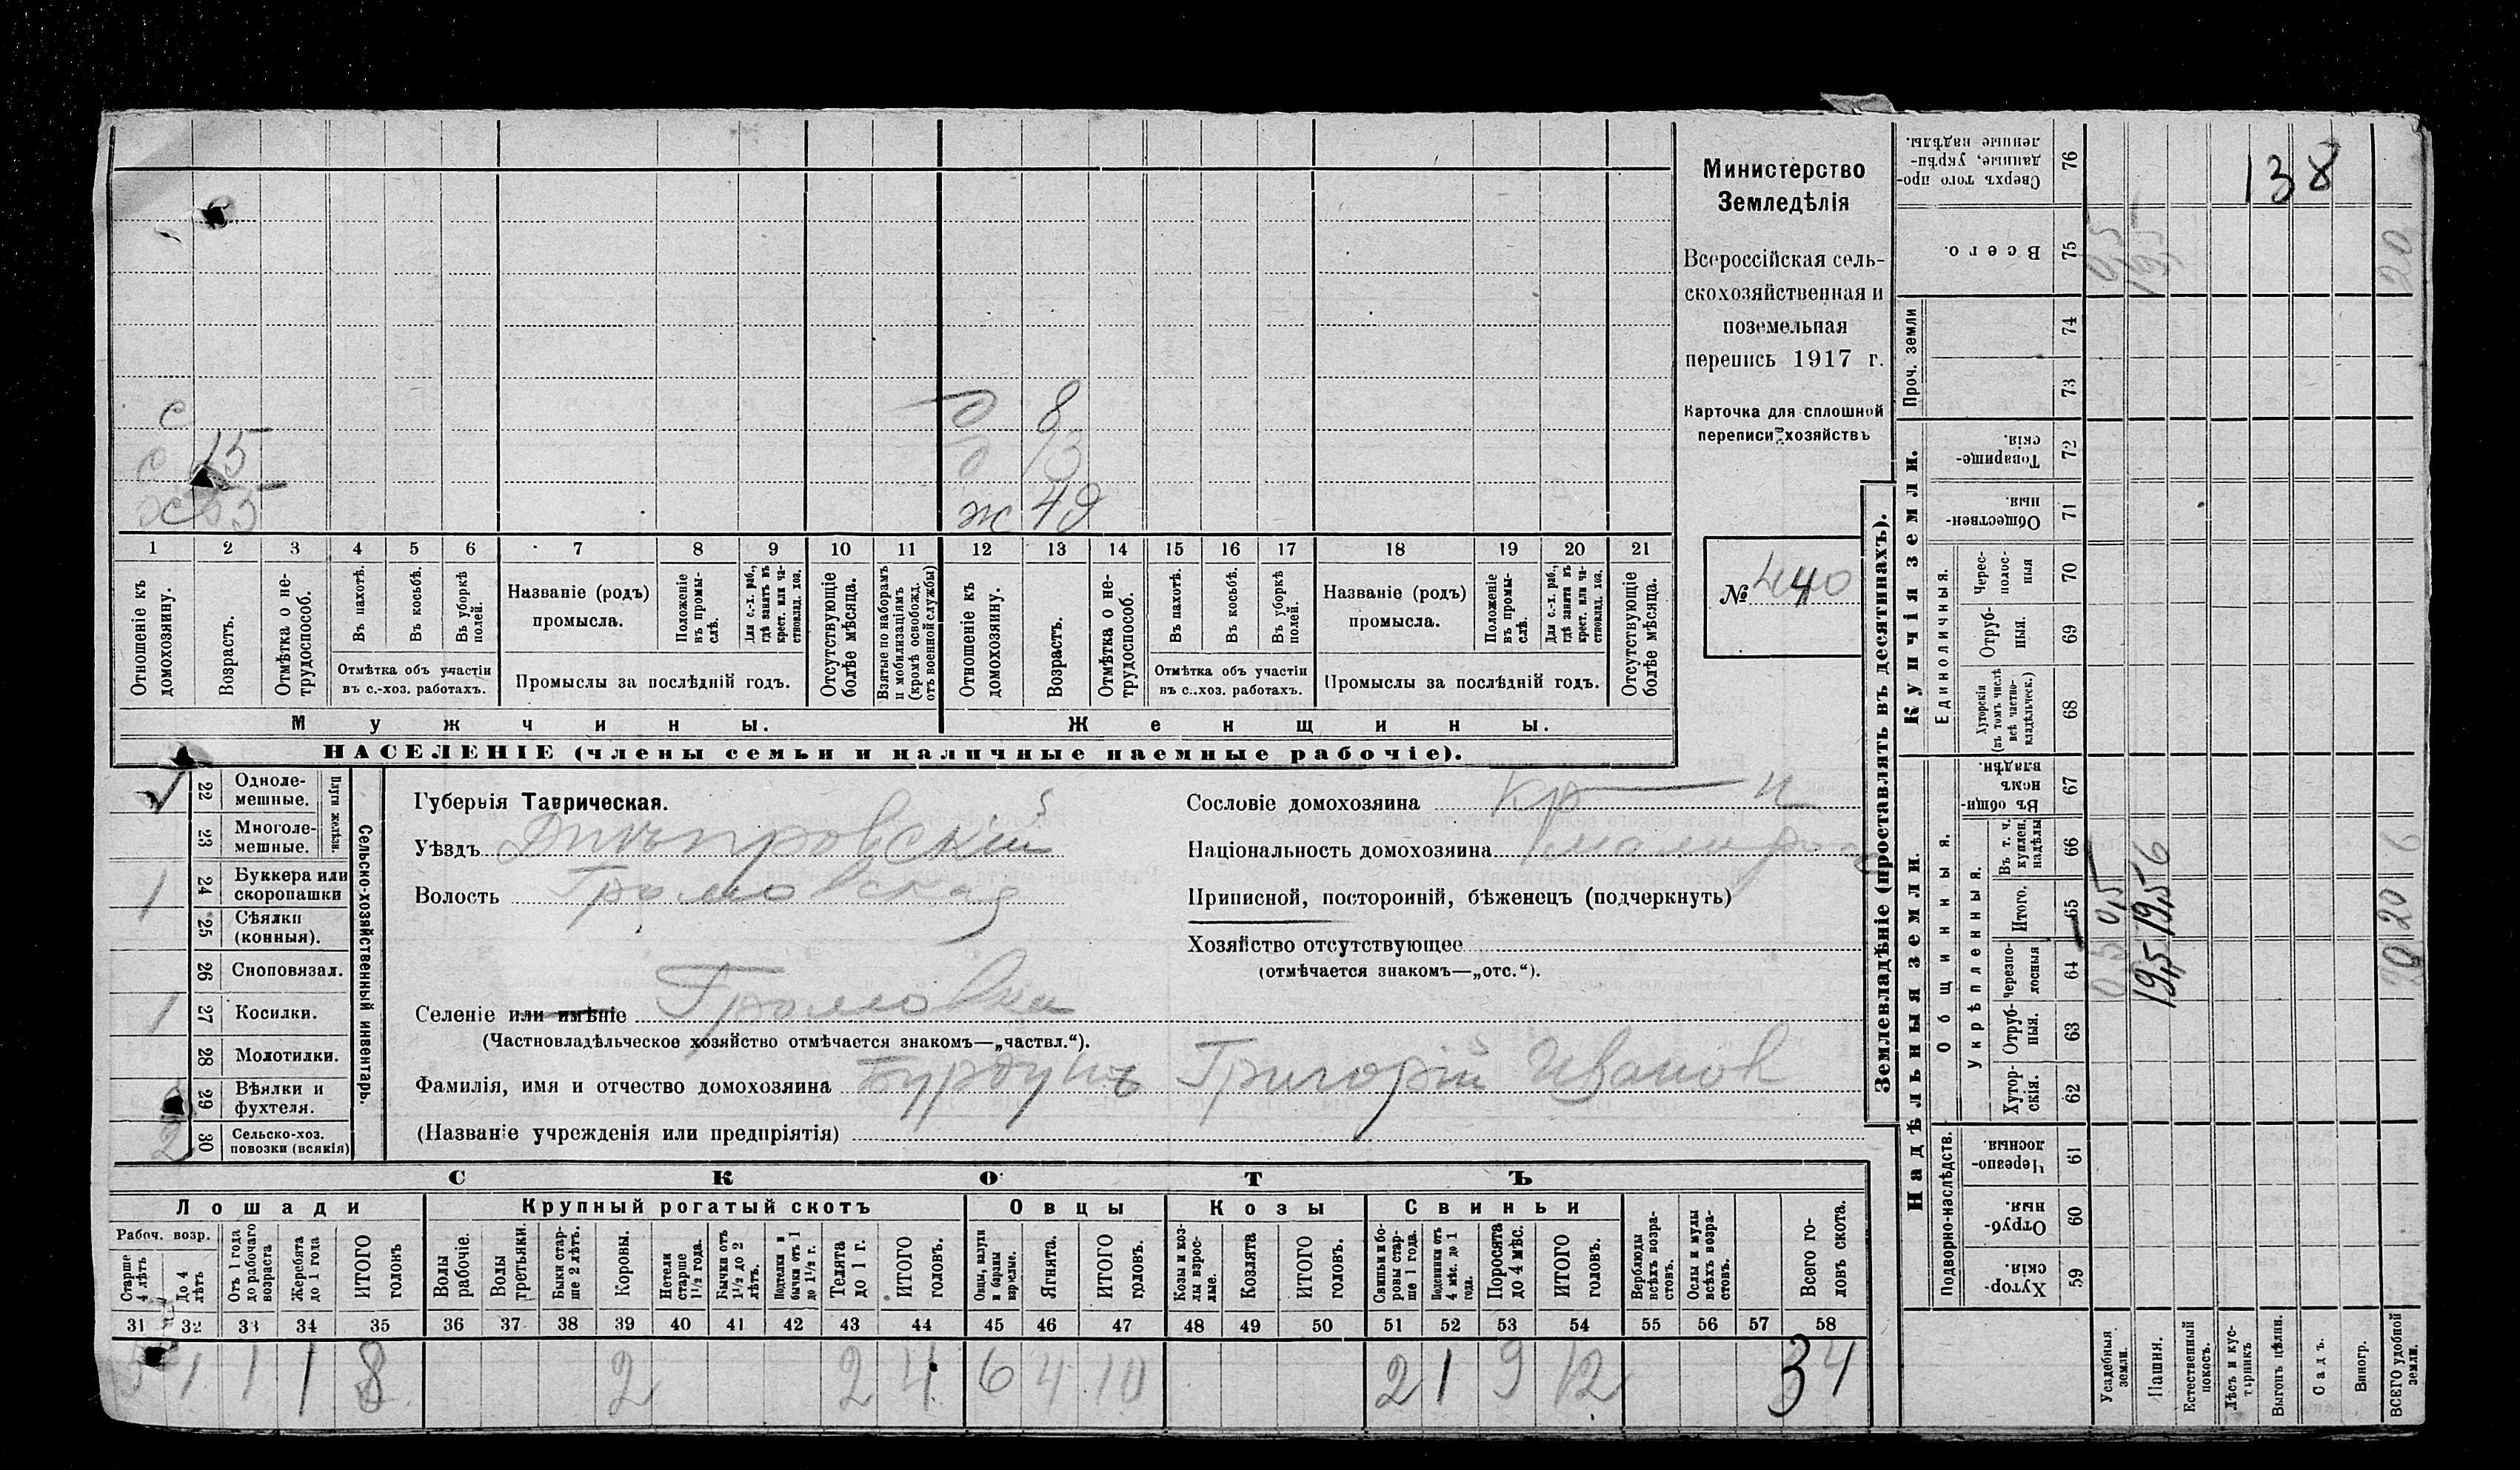 Министерство
Земледѣлія
Всероссійская сель-
скохозяйственная и
поземельная
перепись 1917 г.
Карточка для сплошной
переписи хозяйствъ
№ 440
с 8
с 15 13
ж 49
1 2 3 4 5 6 7 8 9 10 11 12 13 14 15 16 17 18 19 20 21
Отношеніе къ домохозяину.
Возрастъ.
Отмѣтка о не-трудоспособ.
Въ пахотѣ.
Въ косьбѣ.
Въ уборкѣ полей.
Отмѣтка объ участіи
въ с.-хоз. работахъ.
Названіе (родъ)
промысла.
Положеніе въ промы-слѣ.
Для с.-х. раб., гдѣ занятъ въ крест. или ча-стновлад. хоз.
Промыслы за послѣдній годъ.
Отсутствующіе болѣе мѣсяца.
Взятые по наборамъ и мобилизаціямъ (кромѣ освобожд. отъ военной службы)
Отношеніе къ домохозяину.
Возрастъ.
Отмѣтка о не-трудоспособ.
Въ пахотѣ.
Въ косьбѣ.
Въ уборкѣ полей.
Отмѣтка объ участіи
въ с.-хоз. работахъ.
Названіе (родъ)
промысла.
Положеніе въ промы-слѣ.
Для с.-х. раб., гдѣ занята въ крест. или ча-стновлад. хоз.
Промыслы за послѣдній годъ.
Отсутствующіе болѣе мѣсяца.
Мужчины. Женщины.
НАСЕЛЕНІЕ (члены семьи и наличные наемные рабочіе).
22 Одноле-мешные.
23 Многоле-мешные.
Плуги желѣзн.
1 24 Буккера или скоропашки
25 Сѣялки (конныя).
26 Сноповязал.
1 27 Косилки.
28 Молотилки.
29 Вѣялки и фухтеля.
2 30 Сельско-хоз. повозки (всякія)
Сельско-хозяйственный инвентарь.
Губернія Таврическая.
Уѣздъ Днѣпровскій
Волость Громовская
Селеніе или имѣніе Громовка
(Частновладѣльческое хозяйство отмѣчается знакомъ—„частвл.“).
Фамилія, имя и отчество домохозяина Бурдунъ Григорій Иванов
(Названіе учрежденія или предпріятія)
Сословіе домохозяина кр—н
Національность домохозяина малорос
Приписной, посторонній, бѣженецъ (подчеркнуть)
Хозяйство отсутствующее
(отмѣчается знакомъ—„отс.“).
СКОТЪ
Лошади Крупный рогатый скотъ Овцы Козы Свиньи
Рабоч. возр.
Старше 4 лѣтъ
До 4 лѣтъ
Отъ 1 года до рабочаго возраста
Жеребята до 1 года
ИТОГО головъ
Волы рабочіе.
Волы третьяки.
Быки стар-ше 2 лѣтъ.
Коровы.
Нетели старше 1½ года.
Бычки отъ 1½ до 2 лѣтъ.
Подтелки и бычки отъ 1 до 1½ г.
Телята до 1 г.
ИТОГО головъ.
Овцы, валухи и бараны взрослые.
Ягнята.
ИТОГО головъ.
Козы и коз-лы взрос-лые.
Козлята
ИТОГО головъ.
Свиньи и бо-ровы стар-ше 1 года.
Подсвинки отъ 4 мѣс. до 1 года.
Поросята до 4 мѣс.
ИТОГО головъ.
Верблюды всѣхъ возра-стовъ.
Ослы и мулы всѣхъ возра-стовъ.
Всего го-ловъ скота.
31 32 33 34 35 36 37 38 39 40 41 42 43 44 45 46 47 48 49 50 51 52 53 54 55 56 57 58
5 1 1 1 8 2 2 4 6 4 10 2 1 9 12 34
Землевладѣніе (проставлять въ десятинахъ).
Надѣльныя земли. Купчія земли. Проч. земли
Подворно-наслѣдств.
Общинныя.
Укрѣпленныя.
Единоличныя.
Сверхъ того про-данные, укрѣп-ленные надѣлы. 76 138
Всего. 75 0,5 19,5 20
74
73
Товарище-скія. 72
Обществен-ныя. 71
Черес-полос-ныя 70
Отруб-ныя. 69
Хуторскія (въ томъ числѣ всѣ частно-владѣльческ.) 68
Въ общин-номъ владѣн. 67
Въ т. ч. куплен. надѣлы 66
Итого. 65 0,5 19,5 20
Черезпо-лосныя 64 0,5 19,5 20
Отруб-ныя. 63
Хутор-скія. 62
Черезпо-лосныя. 61
Отруб-ныя. 60
Хутор-скія. 59
Усадебныя земли.
Пашня.
Естественный покосъ.
Лѣсъ и кус-тарникъ
Выгонъ цѣлин.
Садъ.
Виногр.
ВСЕГО удобной земли.